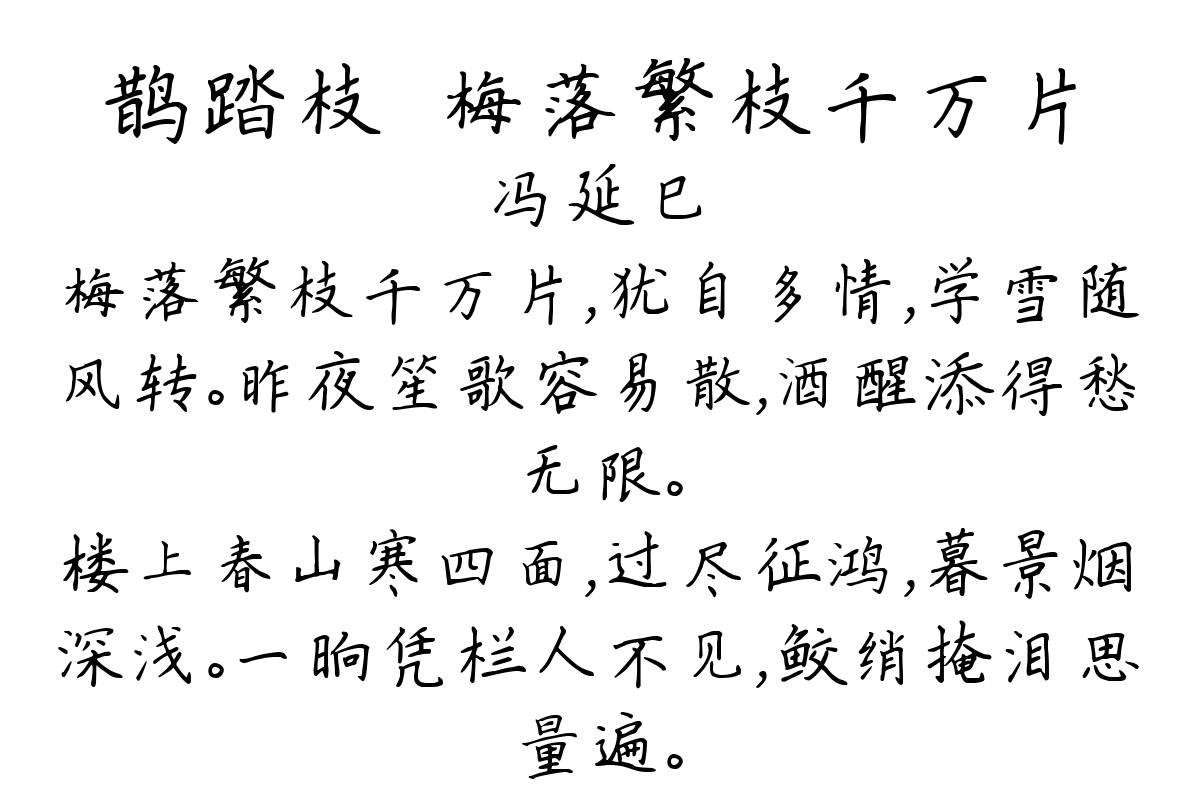 鹊踏枝 梅落繁枝千万片
冯延巳
梅落繁枝千万片,犹自多情,学雪随
风转。昨夜笙歌容易散,酒醒添得愁
无限。
楼上春山寒四面,过尽征鸿,暮景烟
深浅。一晌凭栏人不见,鲛绡掩泪思
量遍。